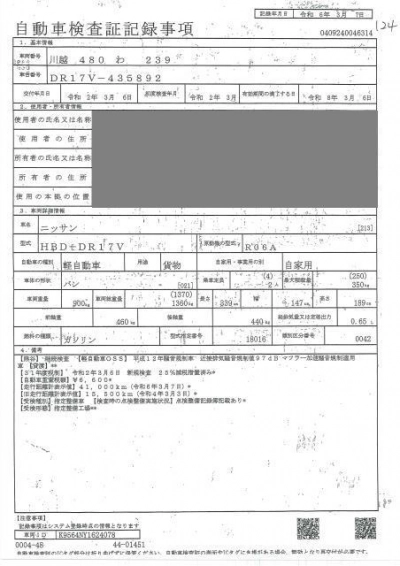 自動車検査証記録事項
記録年月日 令和 6年 3月 7日
0409240046314
124
1．基本情報
車両番号 川越 480 わ 239
車台番号 DR17V-435892
交付年月日 令和 2年 3月 6日 初度検査年月 令和 2年 3月 有効期間の満了する日 令和 8年 3月 6日
2．使用者・所有者情報
使用者の氏名又は名称
使用者の住所
所有者の氏名又は名称
所有者の住所
使用の本拠の位置
3．車両詳細情報
車名 ニッサン [213]
型式 HBD-DR17V 原動機の型式 R06A
自動車の種別 軽自動車 用途 貨物 自家用・事業用の別 自家用
車体の形状 バン [021] 乗車定員 (4) 2人 最大積載量 (250) 350kg
車両重量 900kg 車両総重量 (1370) 1360kg 長さ 339cm 幅 147cm 高さ 189cm
前軸重 460kg 後軸重 440kg 総排気量又は定格出力 0.65L
燃料の種類 ガソリン 型式指定番号 18016 類別区分番号 0042
4．備考
【熊谷】 継続検査 【軽自動車OSS】 平成12年騒音規制車 近接排気騒音規制値97dB マフラー加速騒音規制適用
車 【貸渡】**
【31年度税制】 令和2年3月6日 新規検査 25%減税措置済み*
【自動車重量税額】 ¥6,600*
【走行距離計表示値】 41,000km (令和6年3月7日)*
【旧走行距離計表示値】 15,300km (令和4年3月3日)*
【受検種別】 指定整備車 【検査時の点検整備実施状況】 点検整備記録簿記載あり*
【受検形態】 指定整備工場**
【注意事項】
記録事項はシステム登録時点の情報となります
車両ID K9564NY1624078
0004-4B 44-01451